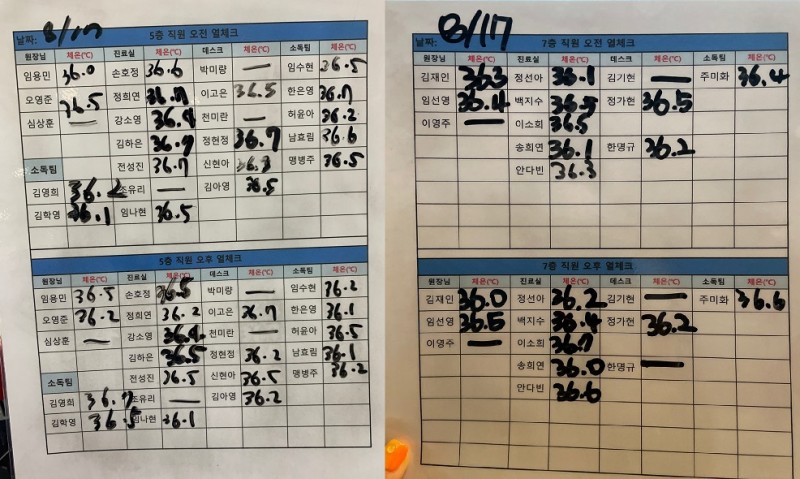 날짜: 8/17 5층 직원 오전 열체크
원장님 체온(℃) 진료실 체온(℃) 데스크 체온(℃) 소독팀 체온(℃)
임용민 36.0 손호정 36.6 박미량 — 임수현 36.5
오영준 36.5 정희연 36.7 이고은 36.5 한은영 36.7
심상훈 — 강소영 36.9 천미란 — 허윤아 36.2
김하은 36.7 정현정 36.7 남효림 36.6
소독팀 전성진 36.7 신현아 36.3 맹병주 36.5
김영희 36.2 조유리 — 김아영 36.5
김학영 36.1 임나현 36.5
5층 직원 오후 열체크
원장님 체온(℃) 진료실 체온(℃) 데스크 체온(℃) 소독팀 체온(℃)
임용민 36.5 손호정 36.5 박미량 — 임수현 36.2
오영준 36.2 정희연 36.2 이고은 36.7 한은영 36.1
심상훈 — 강소영 36.4 천미란 — 허윤아 36.5
김하은 36.5 정현정 36.2 남효림 36.1
소독팀 전성진 36.5 신현아 36.5 맹병주 36.2
김영희 36.7 조유리 — 김아영 36.2
김학영 36.5 임나현 36.1
날짜: 8/17 7층 직원 오전 열체크
원장님 체온(℃) 진료실 체온(℃) 데스크 체온(℃) 소독팀 체온(℃)
김재인 36.3 정선아 36.1 김기현 — 주미화 36.4
임선영 36.4 백지수 36.5 정가현 36.5
이영주 — 이소희 36.5
송희연 36.1 한명규 36.2
안다빈 36.3
7층 직원 오후 열체크
원장님 체온(℃) 진료실 체온(℃) 데스크 체온(℃) 소독팀 체온(℃)
김재인 36.0 정선아 36.2 김기현 — 주미화 36.6
임선영 36.5 백지수 36.4 정가현 36.2
이영주 — 이소희 36.7
송희연 36.0 한명규 —
안다빈 36.6